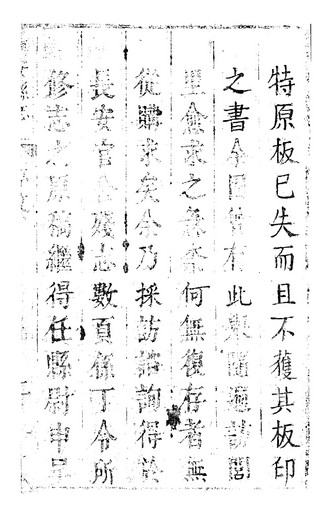 特原板已失而且不獲其板印
之書全圖曾有此製隨遍訪閭
里僉求之無奈何無復存者無
從購求矣余乃採訪諮詢得於
長安官舍殘志數頁係丁令所
修志之原稿繼得任縣尉申呈